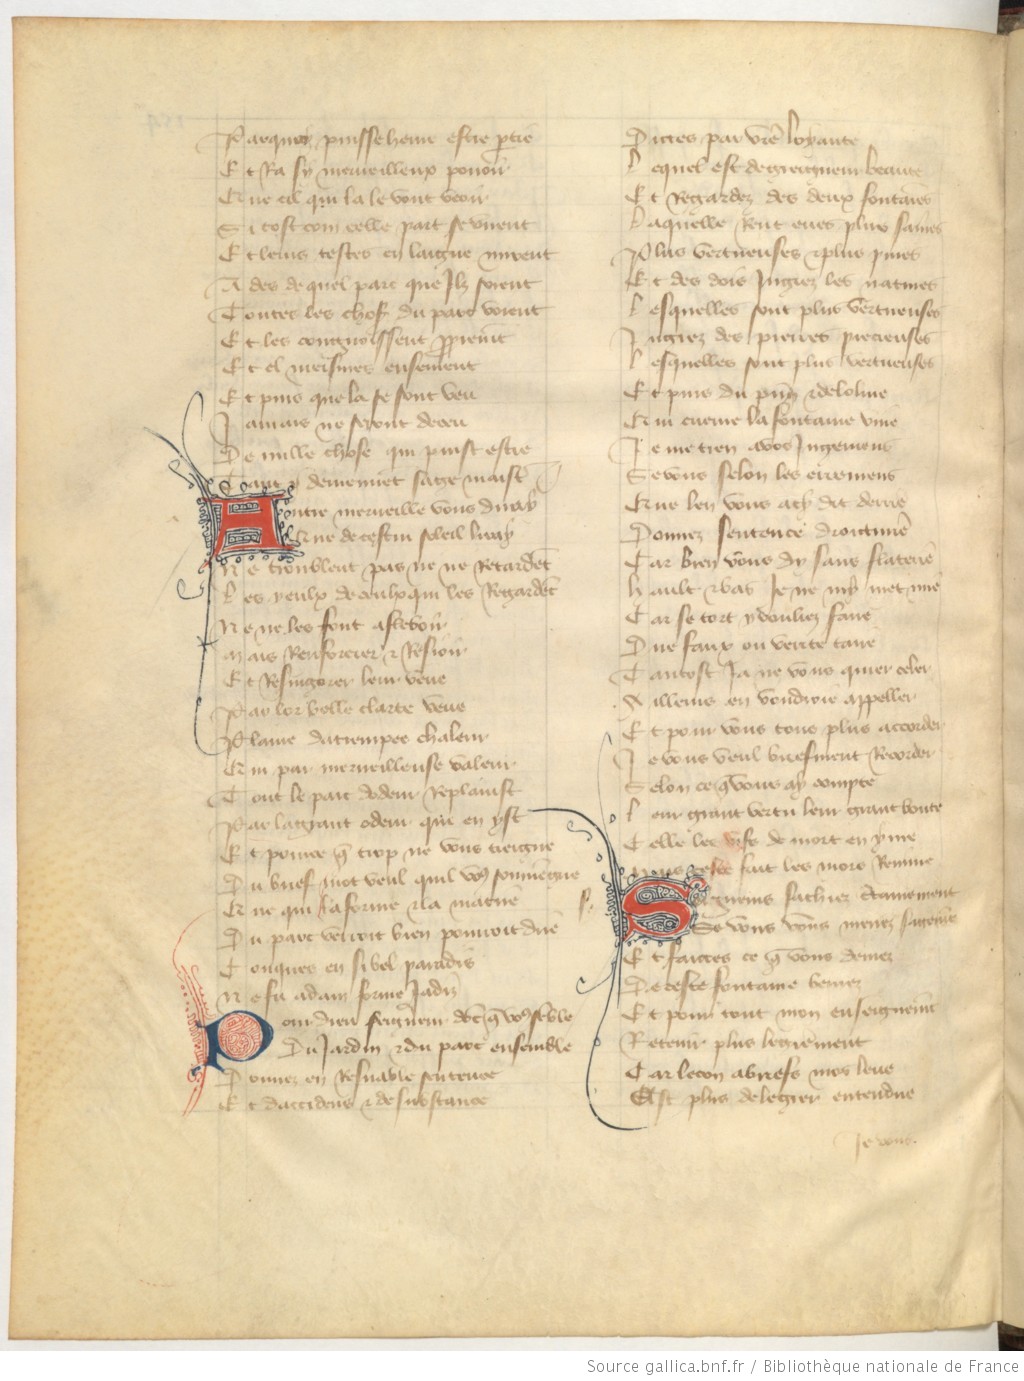 Par quoy puisse heure estre perie
Et Ra sy merveilleux povoir
Que cil qui la le vont veoir
Si tost com celle part se virent
Et leurs testes en laigue mirent
Ades de quel part que Jlz soient
Toutes les choses du parc voient
Et les congnoissent proprement
Et el meismes ensement
Et puis que la se sont veu
Jamais ne seront deceu
De nulle chose qui puist estre
Tant y devienent sage maistre
Aultre merveille vous diray
Que de cestui soleil le ray
Ne troublent pas ne ne Retardent
Les yeulx de ceulx qui les Regardent
Ne ne les font asleboir
Mais Renforcier & Resioir
Et Resvigorer leur veue
Par lor belle clarte veue
Plaine datrempee chaleur
Qui par merveilleuse valeur
Tout le parc dodeur Replainist
Par la grant odeur qui en yst
Et pource que trop ne vous tieigne
Du brief mot veul quil vous souviengne
Que qui la forme & la matire
Du parc verroit bien pourroit dire
Conques en si bel paradis
Ne fu adam forme Jadiz
Pour dieu seigneurs donc que vous semble
Du Jardin & du parc ensemble
Donnez en Resnable sentence
Et daccidens & de substance
Dictes par vostre loyaute
Lequel est de greigneur beaute
Et Regardez des deux fontaines
Laquelle Rent eues plus saines
Plus vertueuses & plus pures
Et des dois Jugiez les natures
Lesquelles sont plus vertueuses
Jugiez des pierres precieuses
Lesquelles sont plus vertueuses
Et puis du pin & de lolive
Qui cueuvre la fontaine vive
Je me tien a vos Jugemens
Se vous selon les erremens
Que leu vous ay dit derriere
Donnez sentence droicturiere
Car bien vous dy sans flaterie
Hault & bas Je ne my met mie
Car se tort y vouliez faire
Dire faux ou verite taire
Tantost Ja ne vous quier celer
Ailleurs en vouldroie appeller
Et pour vous tous plus accorder
Je vous veul briefment Recorder
Selon ce que vous ay compte
Leur grant vertu leur grant bonte
Celle les vifs de mort enyvre
Mais ceste fait les mors Revivre
Seigneurs sachiez certainement
Se vous vous menez sagement
Et faictes ce que vous devrez
De ceste fontaine bevrez
Et pour tout mon enseignement
Retenir plus legierement
Car lecon a briefs mos leue
Est plus de legier entendue
Je vous.
Source gallica.bnf.fr / Bibliothèque nationale de France